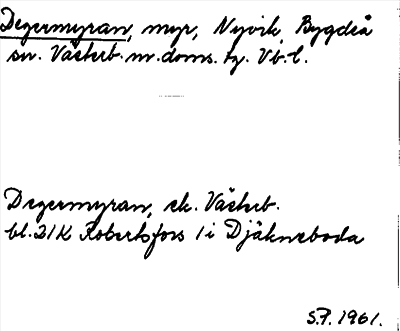 Degermyran, myr, Nyvik, Bygdeå
sn. Västerb. m. doms. tg. Vb. l.
Degermyran, ek. Västerb.
bl. 21K Robertsfors 1 i Djäkneboda
S.P. 1961.